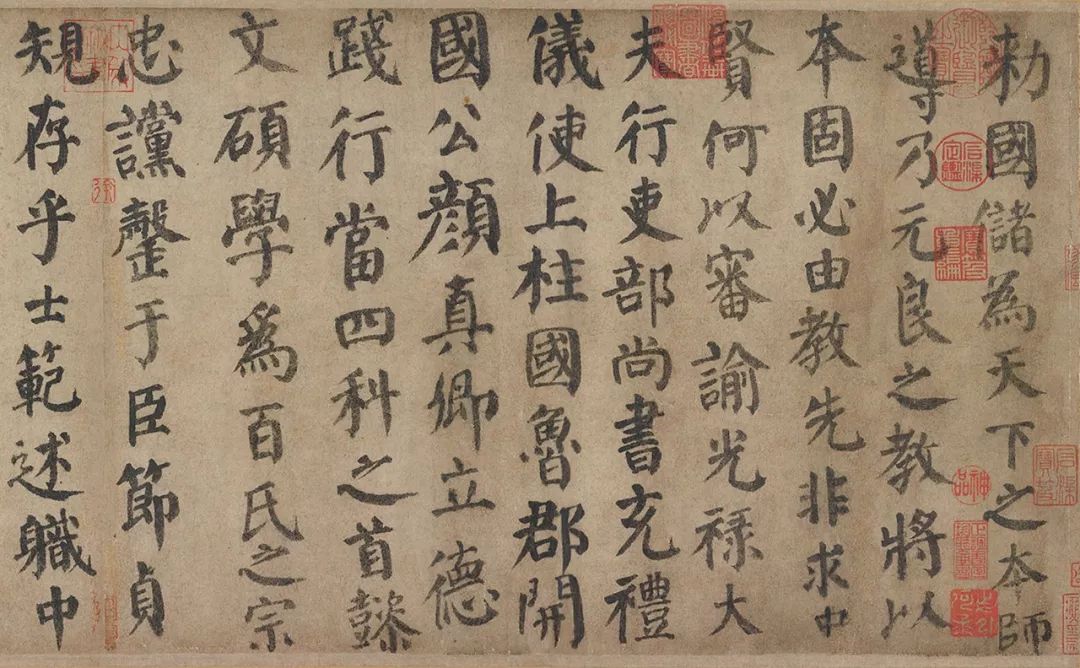 勅國儲為天下之本師
導乃元良之教將以
本固必由教先非求中
賢何以審諭光祿大
夫行吏部尚書充禮
儀使上柱國魯郡開
國公顏真卿立德
踐行當四科之首懿
文碩學爲百氏之宗
忠讜罄于臣節貞
規存乎士範述職中
神品